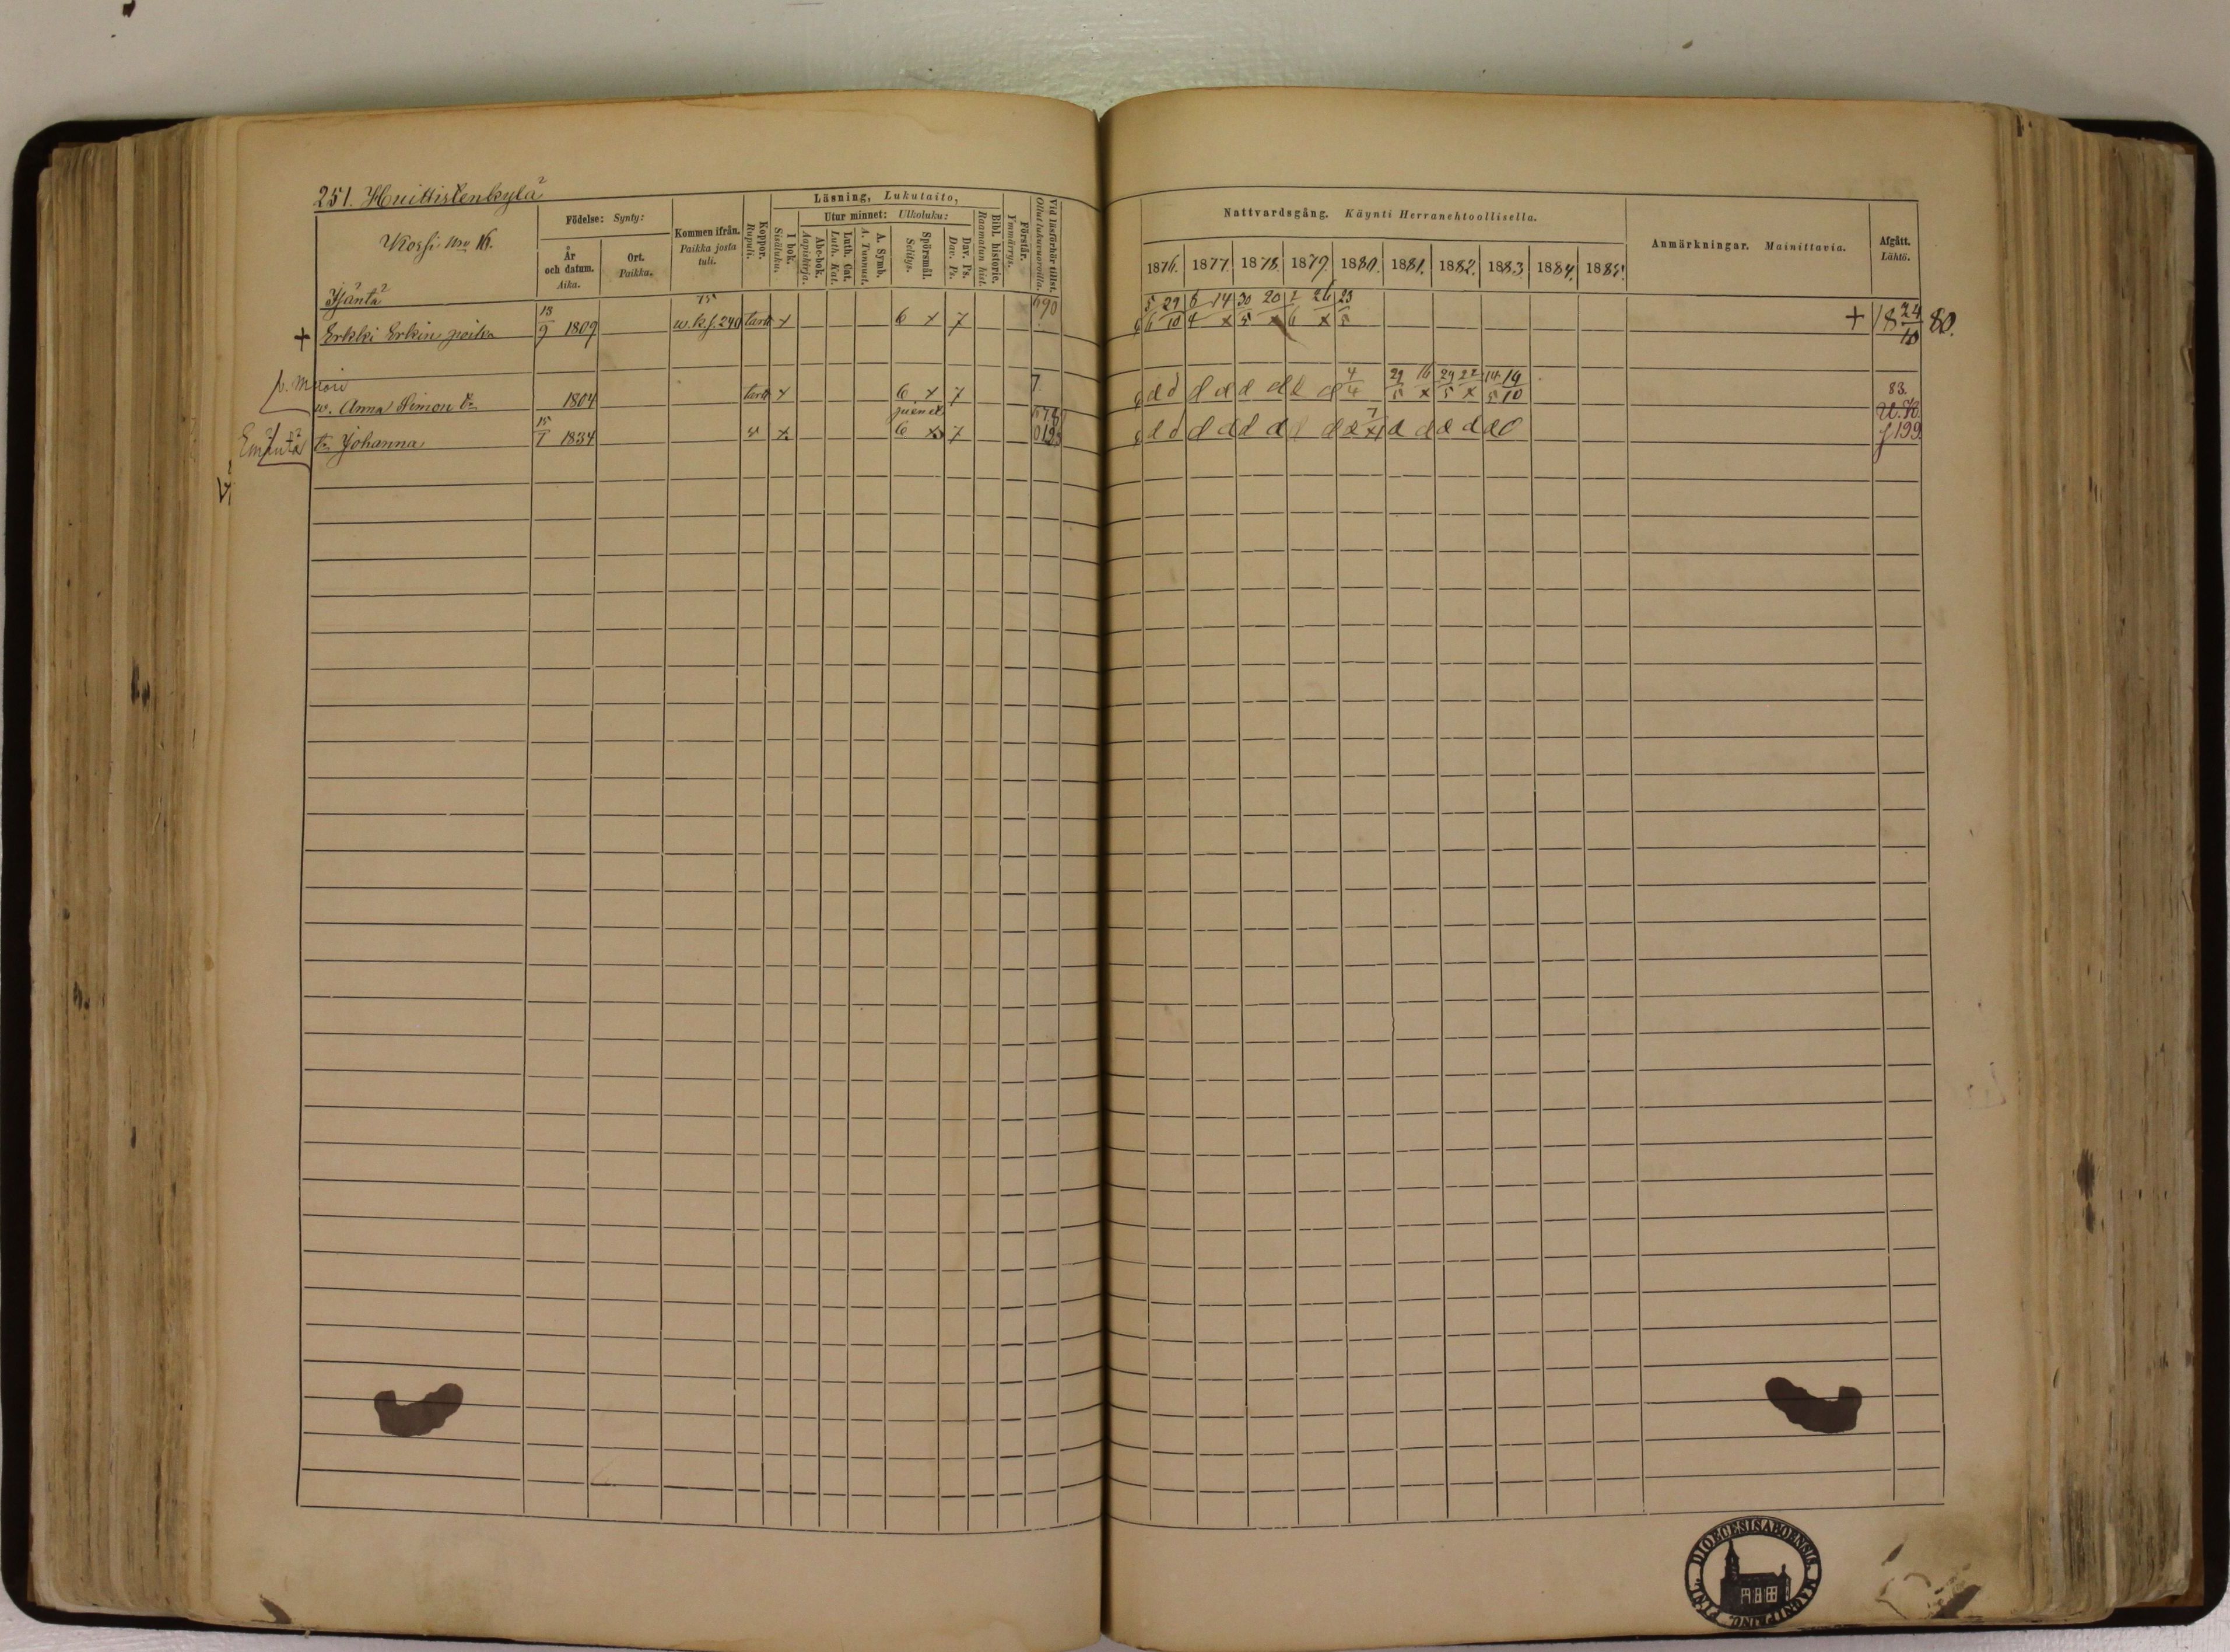 251. Huittistenkylä
Kossi, Nro 16.
Födelse: Synty:
År och datum. Aika.
Ort. Paikka.
Kommen ifrån. Paikka josta tuli.
Koppor. Rupuli.
Läsning, Lukutaito,
I bok. Sisäluku.
Utur minnet: Ulkoluku:
Abc-bok. Aapiskirja.
Luth. Cat. Luth. Kat.
A. Symb. A. Tunnust.
Spörsmål. Selitys.
Dav. Ps. Dav. Ps.
Bibl. historie. Raamatun hist.
Förstår. Ymmärrys.
Vid läsförhör tillst. Ollut lukuvuoroilla.
Nattvardsgång. Käynti Herranehtoollisella.
1876. 1877. 1878. 1879. 1880. 1881. 1882. 1883. 1884. 1885.
Anmärkningar. Mainittavia.
Afgått. Lähtö.
Isäntä 75
+ Erkki Erkin poika 13/9 1809 w.k.s. 240 tark x 6 x 7
5/6 29/10 6/4 14/x 30/5 20/x 1/6 26/x 23/5 + 18 24/10 80.
v. Muori
w. Anna Simon t. 1804 tark x 6 x 7 7.
4/4 29/5 16/x 29/5 22/x 14/5 14/10 83.
Emäntä t. Johanna 15/1 1834 6 x 7
U.K. s 199
FINL. DIOECESIS ABOENSIS. MAGNI PRINC.